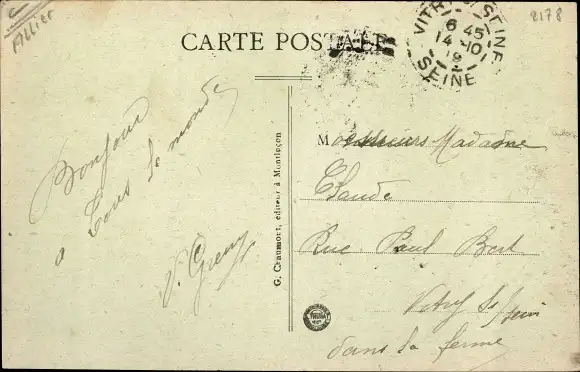 Allier
8178
CARTE POSTALE
VITRY S SEINE
6 45
14 - 10
19
SEINE
Bonjour
a Tous le monde
V. Greny
G. Chaumont, éditeur à Montluçon
Messieurs Madame
Claude
Rue Paul Bert
Vitry s/ Seine
dans la ferme